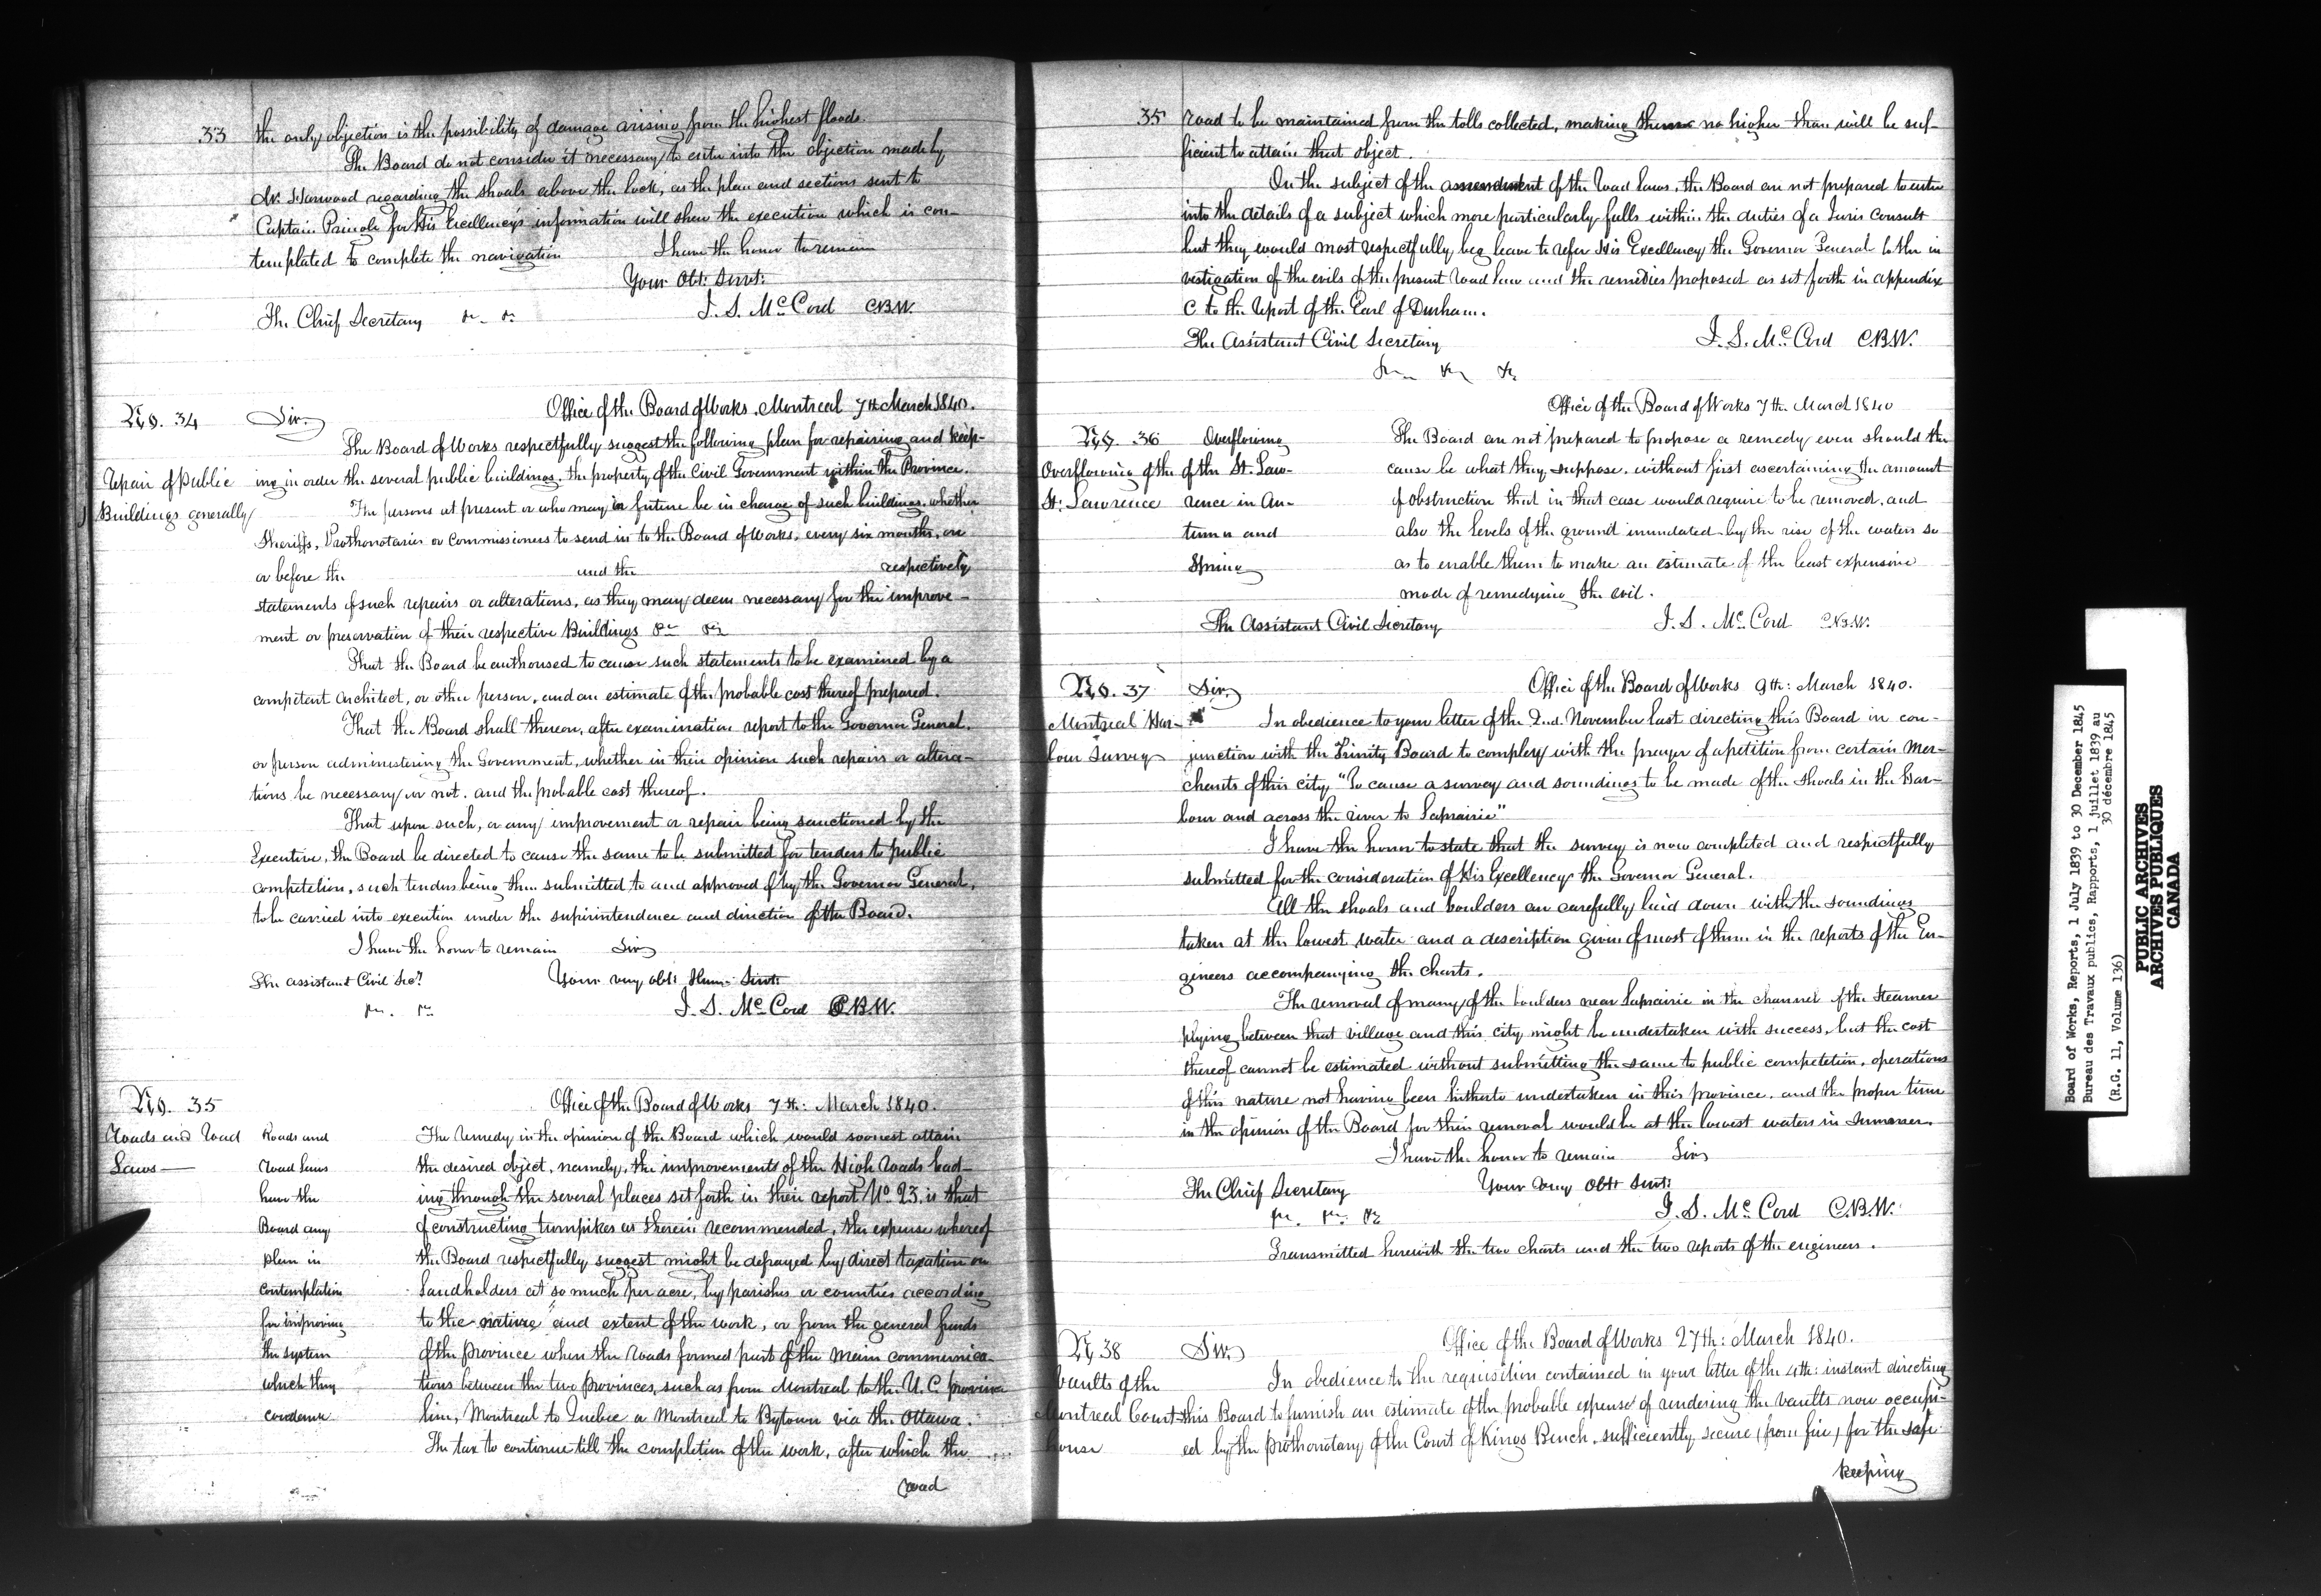 33 the only objection is the possibility of damage arising from the highest floods.
The Board do not consider it necessary to enter into the objection made by
Mr Harwood regarding the shoals above the lock, as the plan and sections sent to
Captain Pringle for His Excellency's information will shew the execution which is con-
templated to complete the navigation I have the honor to remain
Your Obt: Servt:
J. S. McCord CBW.
The Chief Secretary &c. &c.
No. 34 Sir, Office of the Board of Works, Montreal 7th March 1840.
The Board of Works respectfully suggest the following plan for repairing and keep-
Repair of Public ing in order the several public buildings, the property of the Civil Government within the Province.
Buildings generally The persons at present or who may in future be in charge of such buildings, whether
Sheriffs, Prothonotaries or Commissioners to send in to the Board of Works, every six months, on
or before the and the respectively
statements of such repairs or alterations, as they may deem necessary for the improve-
ment or preservation of their respective Buildings &c &c
That the Board be authorised to cause such statements to be examined by a
competent Architect, or other person, and an estimate of the probable cost thereof prepared.
That the Board shall thereon, after examination report to the Governor General,
or person administering the Government, whether in their opinion such repairs or altera-
tions be necessary or not, and the probable cost thereof.
That upon such, or any improvement or repair being sanctioned by the
Executive, the Board be directed to cause the same to be submitted for tenders to public
competition, such tenders being then submitted to and approved of by the Governor General,
to be carried into execution under the superintendence and direction of the Board.
I have the honor to remain Sir
The assistant Civil Secy Your very obt: Hum: Servt:
&c. &c J. S. McCord CBW.
No. 35 Office of the Board of Works 7th: March 1840.
Roads and Road Roads and The remedy in the opinion of the Board which would soonest attain
Laws— Road Laws the desired object, namely, the improvements of the High Roads lead-
have the ing through the several places set forth in their report No 23, is that
Board any of constructing turnpikes as therein recommended, the expense whereof
plan in the Board respectfully suggest might be defrayed by direct taxation on
contemplation Landholders at so much per acre, by parishes or counties according
for improving to the nature and extent of the work, or from the general funds
the system of the province when the roads formed part of the main communica-
which they tions between the two provinces, such as from Montreal to the U. C. province
condemn line, Montreal to Quebec or Montreal to Bytown via the Ottawa.
The tax to continue till the completion of the work, after which the
road
35 road to be maintained from the tolls collected, making them no higher than will be suf-
ficient to attain that object.
On the subject of the amendment of the Road Laws, the Board are not prepared to enter
into the details of a subject which more particularly falls within the duties of a Juris Consult
but they would most respectfully beg leave to refer His Excellency the Governor General to the in
vestigation of the evils of the present road law and the remedies proposed as set forth in appendix
C to the report of the Earl of Durham.
The Assistant Civil Secretary J. S. McCord C.B.W.
&c &c &c
Office of the Board of Works 7th. March 1840
No. 36 Overflowing The Board are not prepared to propose a remedy even should the
Overflowing of the of the St. Law- cause be what they suppose, without first ascertaining the amount
St. Lawrence rence in Au- of obstruction that in that case would require to be removed, and
tumn and also the levels of the ground inundated by the rise of the waters so
Spring as to enable them to make an estimate of the least expensive
mode of remedying the evil.
The Assistant Civil Secretary J. S. McCord C.B.W.
No. 37 Sir, Office of the Board of Works 9th: March 1840.
Montreal Har- In obedience to your letter of the 2nd. November last directing this Board in con-
bour Survey junction with the Trinity Board to comply with the prayer of a petition from certain Mer-
chants of this city "To cause a survey and soundings to be made of the shoals in the Har-
bour and across the river to Laprairie"
I have the honor to state that the survey is now completed and respectfully
submitted for the consideration of His Excellency the Governor General.
All the shoals and boulders are carefully laid down with the soundings
taken at the lowest water and a description given of most of them in the reports of the En-
gineers accompanying the charts.
The removal of many of the boulders near Laprairie in the channel of the Steamer
plying between that village and this city might be undertaken with success, but the cost
thereof cannot be estimated without submitting the same to public competition, operations
of this nature not having been hitherto undertaken in this province, and the proper time
in the opinion of the Board for their removal would be at the lowest waters in Summer.
I have the honor to remain Sir
The Chief Secretary Your Very Obt Servt:
&c. &c. &c J. S. McCord C.B.W.
Transmitted herewith the two charts and the two reports of the engineers.
No 38 Sir, Office of the Board of Works 27th: March 1840.
Vaults of the In obedience to the requisition contained in your letter of the 4th: instant directing
Montreal Court this Board to furnish an estimate of the probable expense of rendering the vaults now occupi-
house ed by the prothonotary of the Court of Kings Bench, sufficiently secure (from fire) for the safe
keeping
Board of Works, Reports, 1 July 1839 to 30 December 1845
Bureau des Travaux publics, Rapports, 1 juillet 1839 au
30 décembre 1845
(R.G. 11, Volume 136)
PUBLIC ARCHIVES
ARCHIVES PUBLIQUES
CANADA